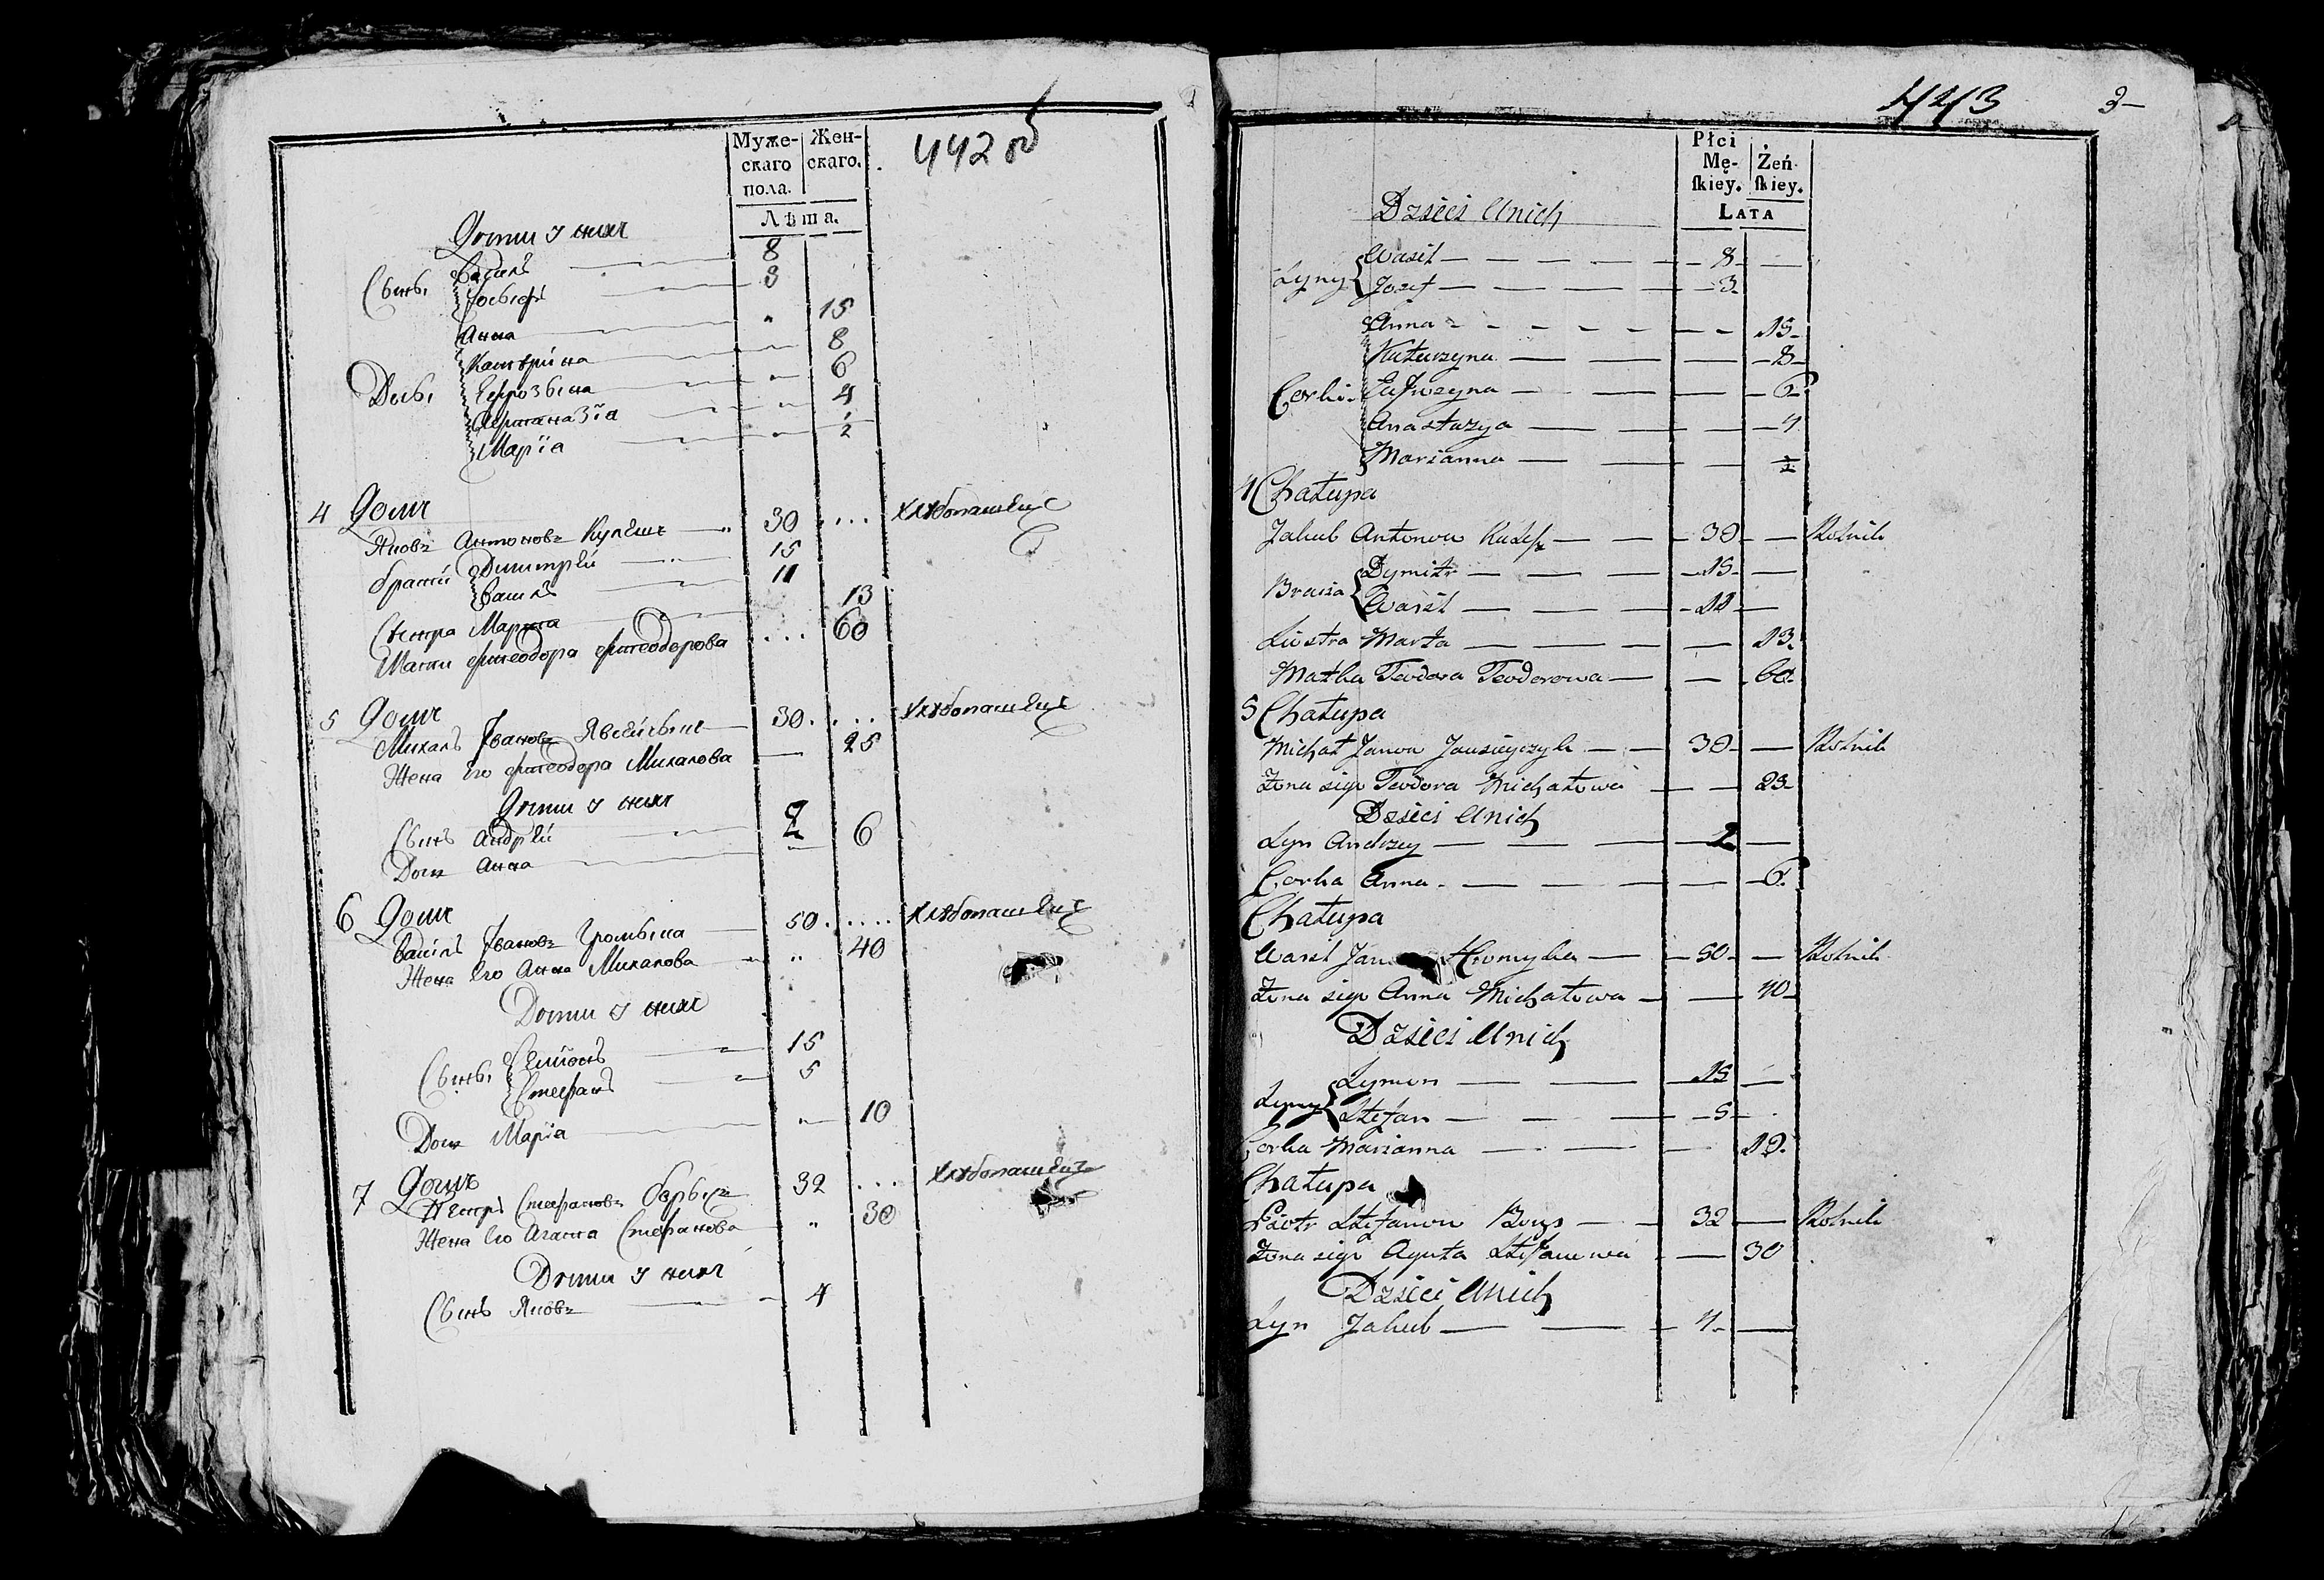 442 об
Муже- Жен-
скаго скаго.
пола.
Лѣта.
Дѣти у нихъ
Сыны Василь 8
Іосыфъ 3
Анна 15
Катерина 8
Дочь Ефрозына 6
Анастазіа 4
Маріа 2
4 Домъ
Яковъ Антоновъ Кулешъ 30 Хлѣбопашецъ
братіи Димитрій 15
Василь 11
Сѣстра Марта 13
Матка Фтеодора Фтеодорова 60
5 Домъ
Михалъ Івановъ 30 Хлѣбопашецъ
Жена Его Фтеодора Михалова 25
Дѣти у нихъ
Сынъ Андрѣй 2
Дочь Анна 6
6 Домъ
Василь Івановъ Громыка 50 Хлѣбопашецъ
Жена Его Анна Михалова 40
Дѣти у нихъ
Сыны Семіонъ 15
Стефанъ 5
Дочь Маріа 10
7 Домъ
Пётръ Стефановъ 32 Хлѣбопашецъ
Жена Его Агата Стефанова 30
Дѣти у нихъ
Сынъ Яковъ 4
443 3
Płci
Mę- Żeń-
skiey. skiey.
LATA
Dzieci Unich
Syny Wasil 8
Jozef 3
Anna 15
Katarzyna 8
Corki Eufrozyna 6
Anastazya 4
Marianna 2
4 Chałupa
Jakub Antonow Kulesz 30 Rolnik
Bracia Dymitr 15
Wasil 11
Siostra Marta 13
Matka Teodora Teodorowa 60
5 Chałupa
Michał Janow 30 Rolnik
Żona iego Teodora Michałowa 25
Dzieci Unich
Syn Andrzey 2
Corka Anna 6
Chałupa
Wasil Jan Hromyka 50 Rolnik
Żona iego Anna Michałowa 40
Dzieci Unich
Syny Symon 15
Stefan 5
Corka Marianna 10
Chałupa
Piotr Stefanow 32 Rolnik
Żona iego Agata Stefanowa 30
Dzieci Unich
Syn Jakub 4